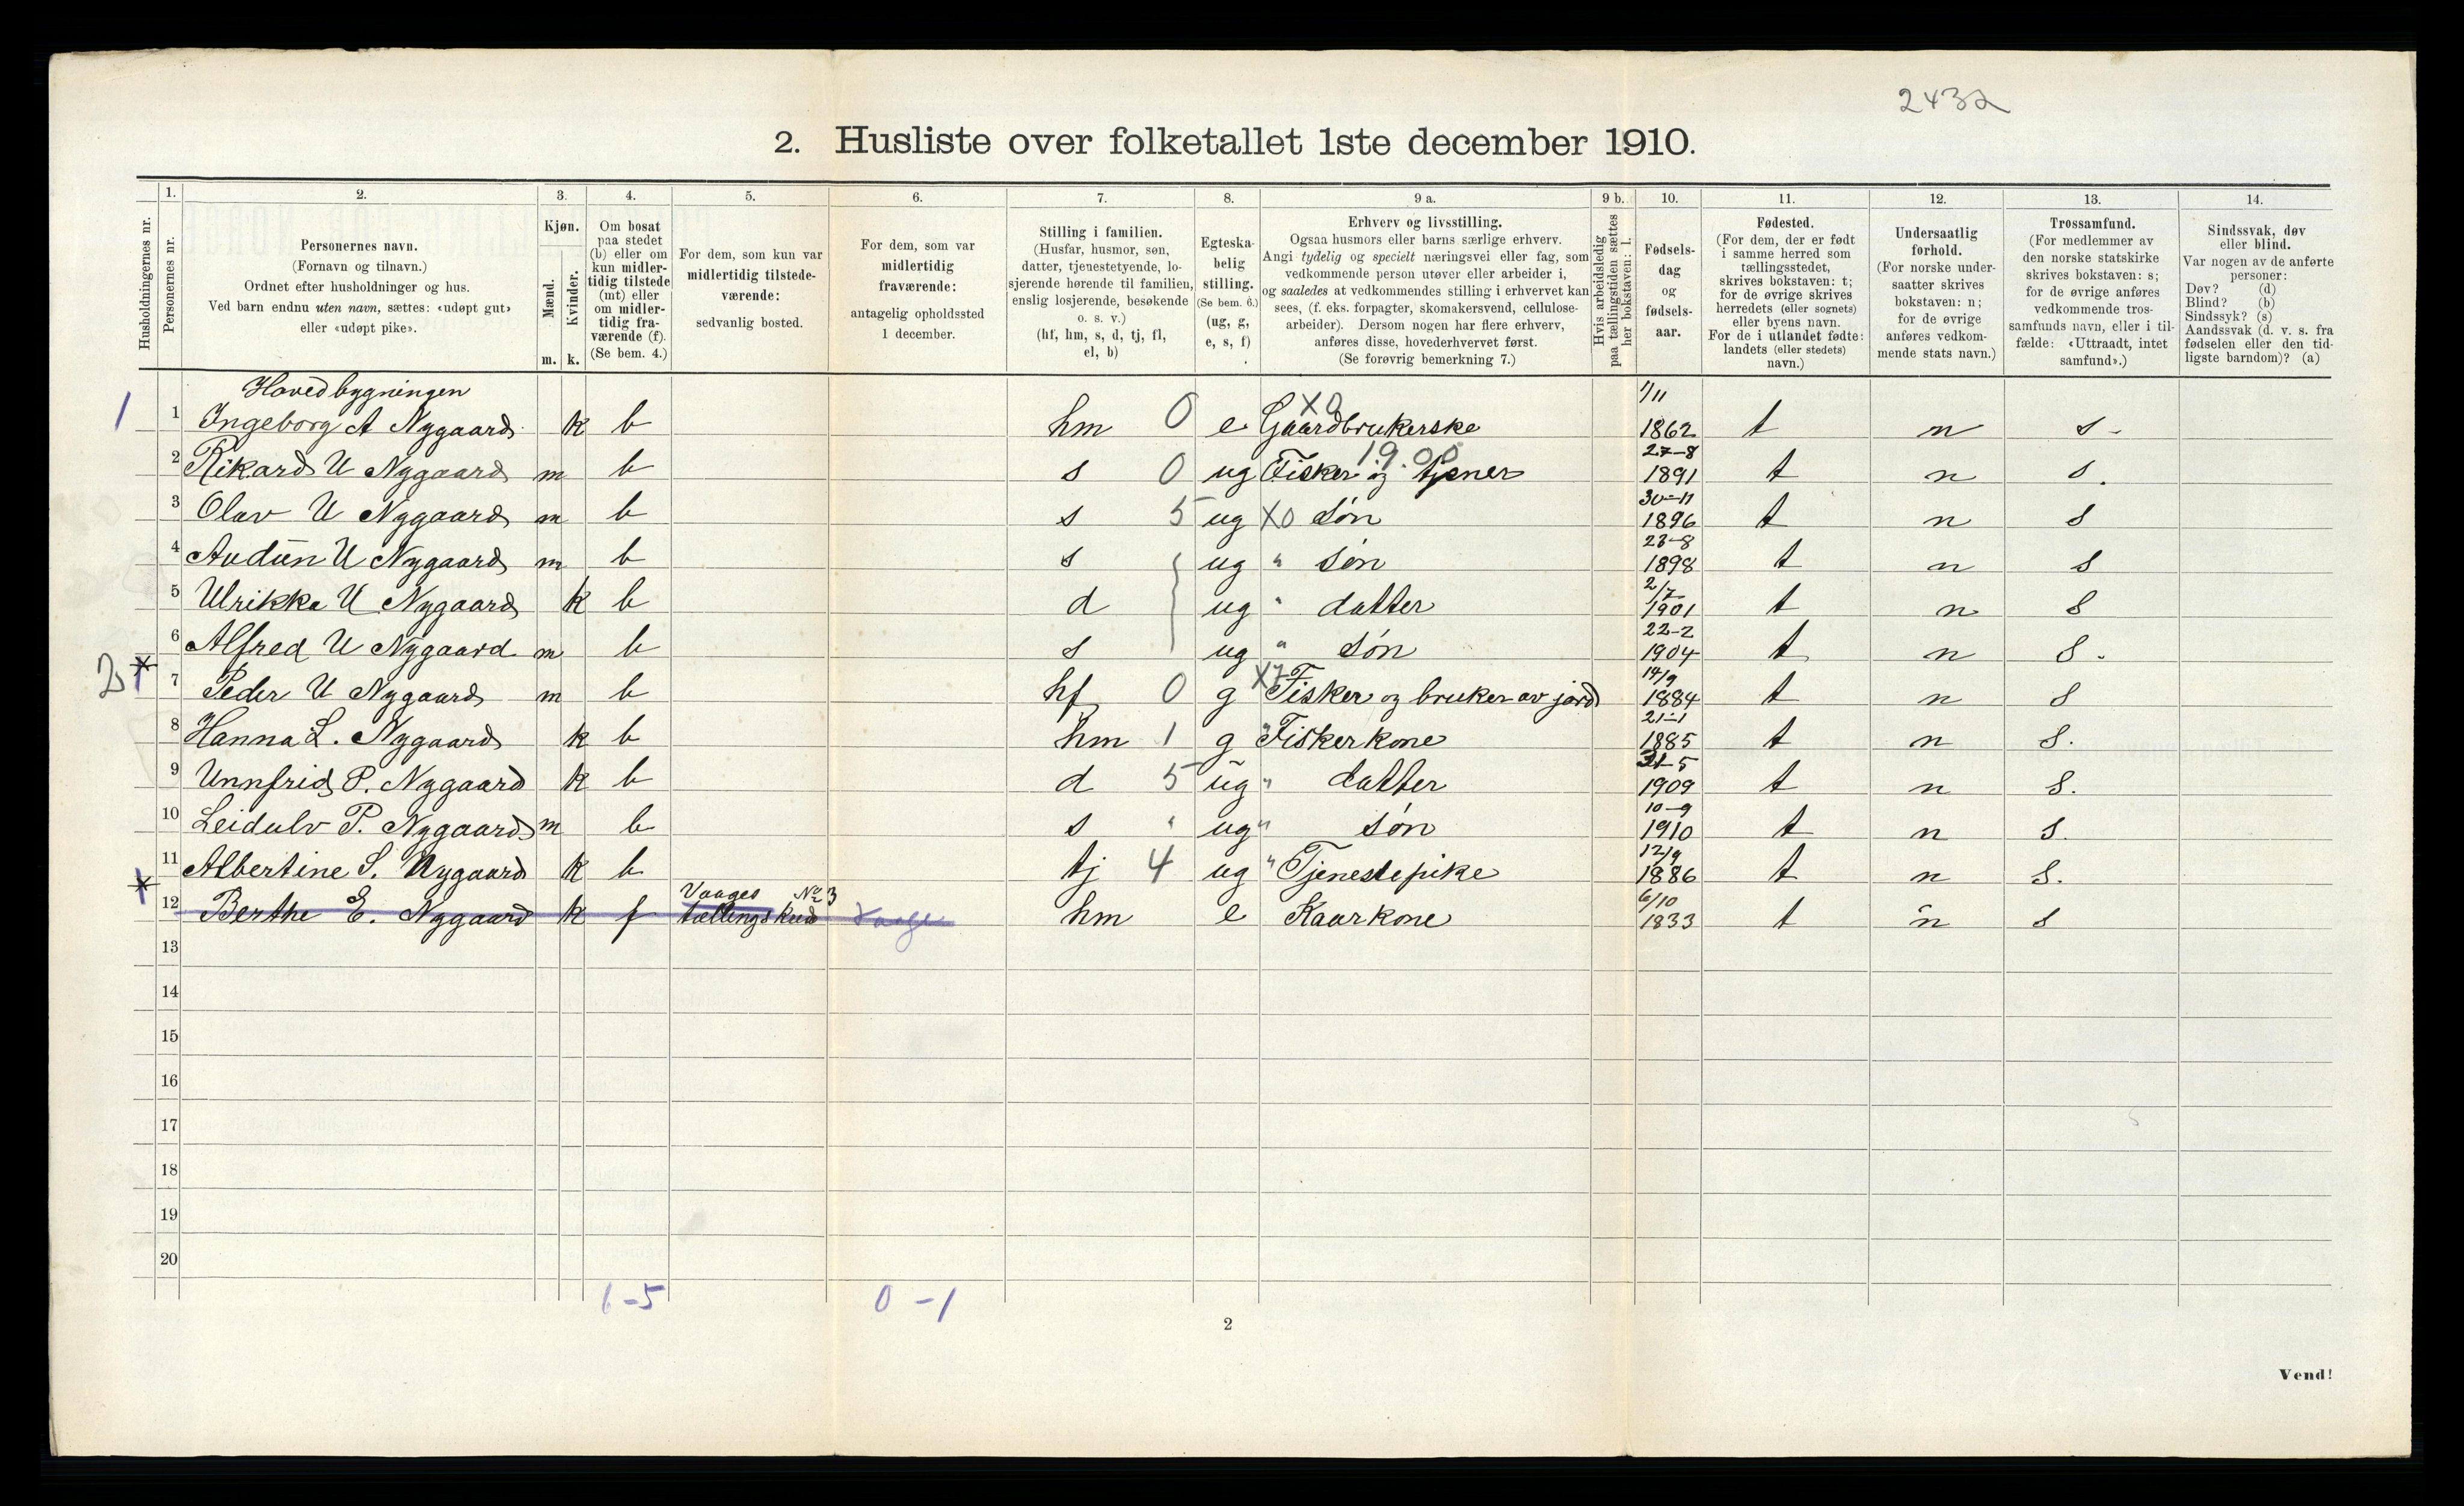 2432
2. Husliste over folketallet 1ste december 1910.
Husholdningernes nr.
1.
Personernes nr.
2.
Personernes navn.
(Fornavn og tilnavn.)
Ordnet efter husholdninger og hus.
Ved barn endnu uten navn, sættes: «udøpt gut»
eller «udøpt pike».
3.
Kjøn.
Mænd.
Kvinder.
m. k.
4.
Om bosat
paa stedet
(b) eller om
kun midler-
tidig tilstede
(mt) eller
om midler-
tidig fra-
værende (f).
(Se bem. 4.)
5.
For dem, som kun var
midlertidig tilstede-
værende:
sedvanlig bosted.
6.
For dem, som var
midlertidig
fraværende:
antagelig opholdssted
1 december.
7.
Stilling i familien.
(Husfar, husmor, søn,
datter, tjenestetyende, lo-
sjerende hørende til familien,
enslig losjerende, besøkende
o. s. v.)
(hf, hm, s, d, tj, fl,
el, b)
8.
Egteska-
belig
stilling.
(Se bem. 6.)
(ug, g,
e, s, f)
9 a.
Erhverv og livsstilling.
Ogsaa husmors eller barns særlige erhverv.
Angi tydelig og specielt næringsvei eller fag, som
vedkommende person utøver eller arbeider i,
og saaledes at vedkommendes stilling i erhvervet kan
sees, (f. eks. forpagter, skomakersvend, cellulose-
arbeider). Dersom nogen har flere erhverv,
anføres disse, hovederhvervet først.
(Se forøvrig bemerkning 7.)
9 b.
Hvis arbeidsledig
paa tællingstiden sættes
her bokstaven: l.
10.
Fødsels-
dag
og
fødsels-
aar.
11.
Fødested.
(For dem, der er født
i samme herred som
tællingsstedet,
skrives bokstaven: t;
for de øvrige skrives
herredets (eller sognets)
eller byens navn.
For de i utlandet fødte:
landets (eller stedets)
navn.)
12.
Undersaatlig
forhold.
(For norske under-
saatter skrives
bokstaven: n;
for de øvrige
anføres vedkom-
mende stats navn.)
13.
Trossamfund.
(For medlemmer av
den norske statskirke
skrives bokstaven: s;
for de øvrige anføres
vedkommende tros-
samfunds navn, eller i til-
fælde: «Uttraadt, intet
samfund».)
14.
Sindssvak, døv
eller blind.
Var nogen av de anførte
personer:
Døv? (d)
Blind? (b)
Sindssyk? (s)
Aandssvak (d. v. s. fra
fødselen eller den tid-
ligste barndom)? (a)
Hovedbygningen
1 1 Ingeborg A Nygaard k b hm 0 e X0 Gaardbrukerske 1/11 1862 t n s -
2 Rikard U Nygaard m b s 0 ug 1.9.00 Fisker og tjener 27-8 1891 t n s.
3 Olav U Nygaard m b s 5 ug X0 søn 30-11 1896 t n s
4 Audün U Nygaard m b s ug " søn 23-8 1898 t n s
5 Ulrikka U Nygaard k b d ug " datter 2/7 1901 t n s
6 Alfred U Nygaard m b s ug " søn 22-2 1904 t n s -
2 * 7 Peder U Nygaard m b hf 0 g X7 Fisker og bruker av jord 14/9 1884 t n s
8 Hanna L. Nygaard k b hm 1 g " Fiskerkone 21-1 1885 t n s.
9 Unnfrid P. Nygaard k b d 5 ug " datter 31-5 1909 t n s.
10 Leidulv P. Nygaard m b s " ug " søn 10-9 1910 t n s.
11 Albertine S. Nygaard k b tj 4 ug " Tjenestepike 12/9 1886 t n s.
* 12 Berthe E. Nygaard k f Vaages tællingskred No 3 Vaage hm e Kaarkone 6/10 1833 t n s
13
14
15
16
17
18
19
20
6-5 0-1
2
Vend!